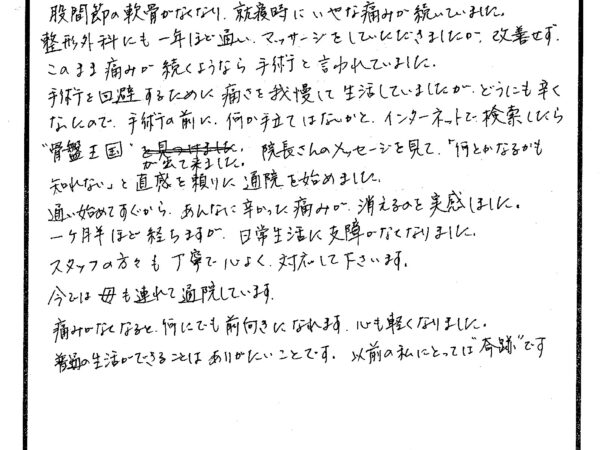 股間節の軟骨がなくなり、就寝時にいやな痛みが続いていました。
整形外科にも一年ほど通い、マッサージをしていただきましたが、改善せず、
このまま痛みが続くようなら手術と言われていました。
手術を回避するために痛さを我慢して生活していましたが、どうにも辛く
なったので、手術の前に、何か手立てはないかと、インターネットで検索したら
"骨盤王国" と見つけました が出て来ました。院長さんのメッセージを見て、「何とかなるかも
知れない」と直感を頼りに通院を始めました。
通い始めてすぐから、あんなに辛かった痛みが、消えるのを実感しました。
一ヶ月半ほど経ちますが、日常生活に支障がなくなりました。
スタッフの方々も丁寧で心よく対応して下さいます。
今では母も連れて通院しています。
痛みがなくなると、何にでも前向きになれます。心も軽くなりました。
普通の生活ができることはありがたいことです。以前の私にとっては"奇跡"です